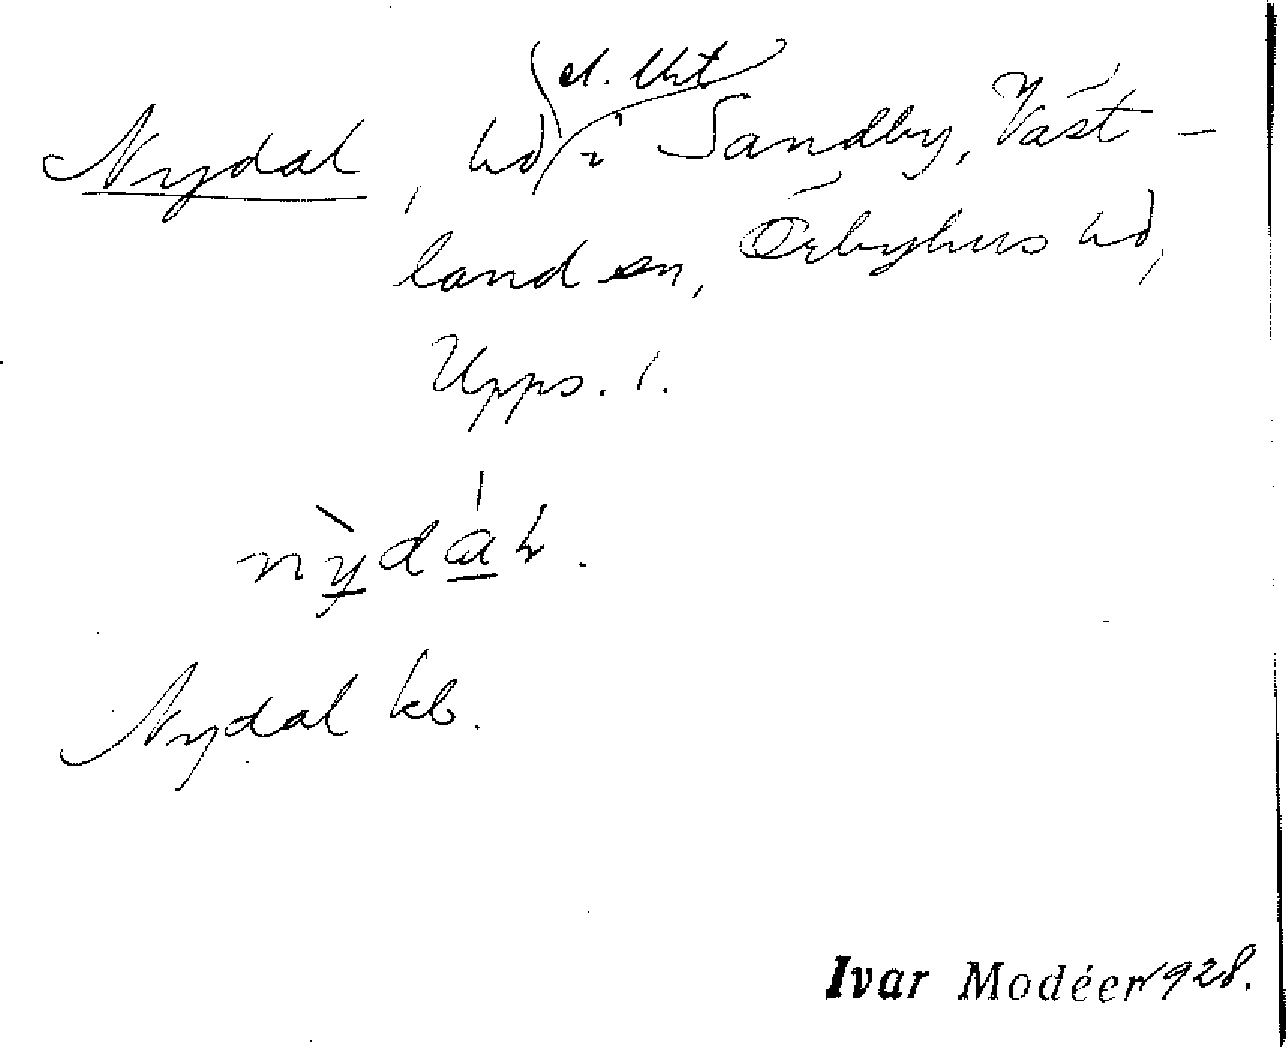 Nydal, hd el. lht i Sandby, Väst-
landen, Örbyhus hd,
Upps. l.
nỳdáɫ.
Nydal kb.
Ivar Modéer 1928.